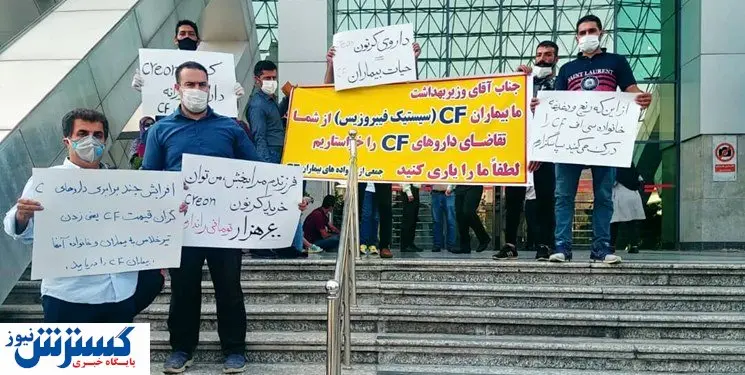 creon
داروی کرئون creon
=
حیات بیماران CF
جناب آقای وزیر بهداشت
ما بیماران CF (سیستیک فیبروزیس) از شما
تقاضای داروهای CF را خواستاریم
لطفاً ما را یاری کنید
جمعی از خانواده های بیماران CF
SAINT LAURENT
از این که رنج و دغدغه
خانواده سی اف CF را
درک می کنید سپاسگزارم
فرزندم مرا ببخش، من توان
خرید کرئون creon
هزار تومانی را ندارم
افزایش چند برابری داروهای
گران قیمت CF یعنی زدن
تیر خلاص به بیماران و خانواده آنها
بیماران CF را دریابید.
گسترش نیوز
پایگاه خبری